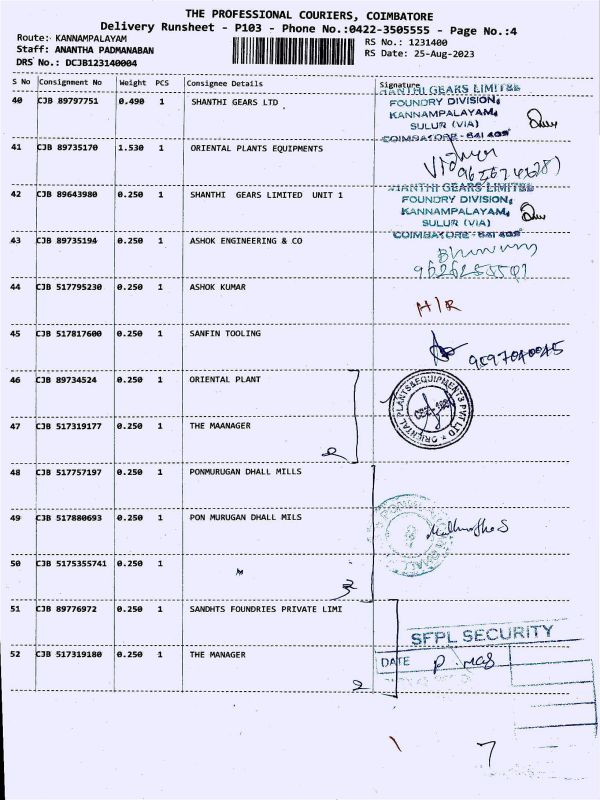 THE PROFESSIONAL COURIERS, COIMBATORE
Delivery Runsheet - P103 - Phone No.:0422-3505555 - Page No.:4
Route: KANNAMPALAYAM
RS No.: 1231400
Staff: ANANTHA PADMANABAN
RS Date: 25-Aug-2023
DRS No.: DCJB123140004
S No Consignment No Weight PCS Consignee Details Signature
40 CJB 89797751 0.490 1 SHANTHI GEARS LTD
SHANTHI GEARS LIMITED
FOUNDRY DIVISION,
KANNAMPALAYAM,
SULUR (VIA)
COIMBATORE - 641 402
41 CJB 89735170 1.530 1 ORIENTAL PLANTS EQUIPMENTS
42 CJB 89643980 0.250 1 SHANTHI GEARS LIMITED UNIT 1
SHANTHI GEARS LIMITED
FOUNDRY DIVISION,
KANNAMPALAYAM,
SULUR (VIA)
COIMBATORE - 641 402
43 CJB 89735194 0.250 1 ASHOK ENGINEERING & CO
44 CJB 517795230 0.250 1 ASHOK KUMAR
H/R
45 CJB 517817600 0.250 1 SANFIN TOOLING
46 CJB 89734524 0.250 1 ORIENTAL PLANT
ORIENTAL PLANTS & EQUIPMENTS PVT LTD
47 CJB 517319177 0.250 1 THE MAANAGER
2
48 CJB 517757197 0.250 1 PONMURUGAN DHALL MILLS
49 CJB 517880693 0.250 1 PON MURUGAN DHALL MILS
50 CJB 5175355741 0.250 1
3
51 CJB 89776972 0.250 1 SANDHTS FOUNDRIES PRIVATE LIMI
SFPL SECURITY
52 CJB 517319180 0.250 1 THE MANAGER
DATE
2
7